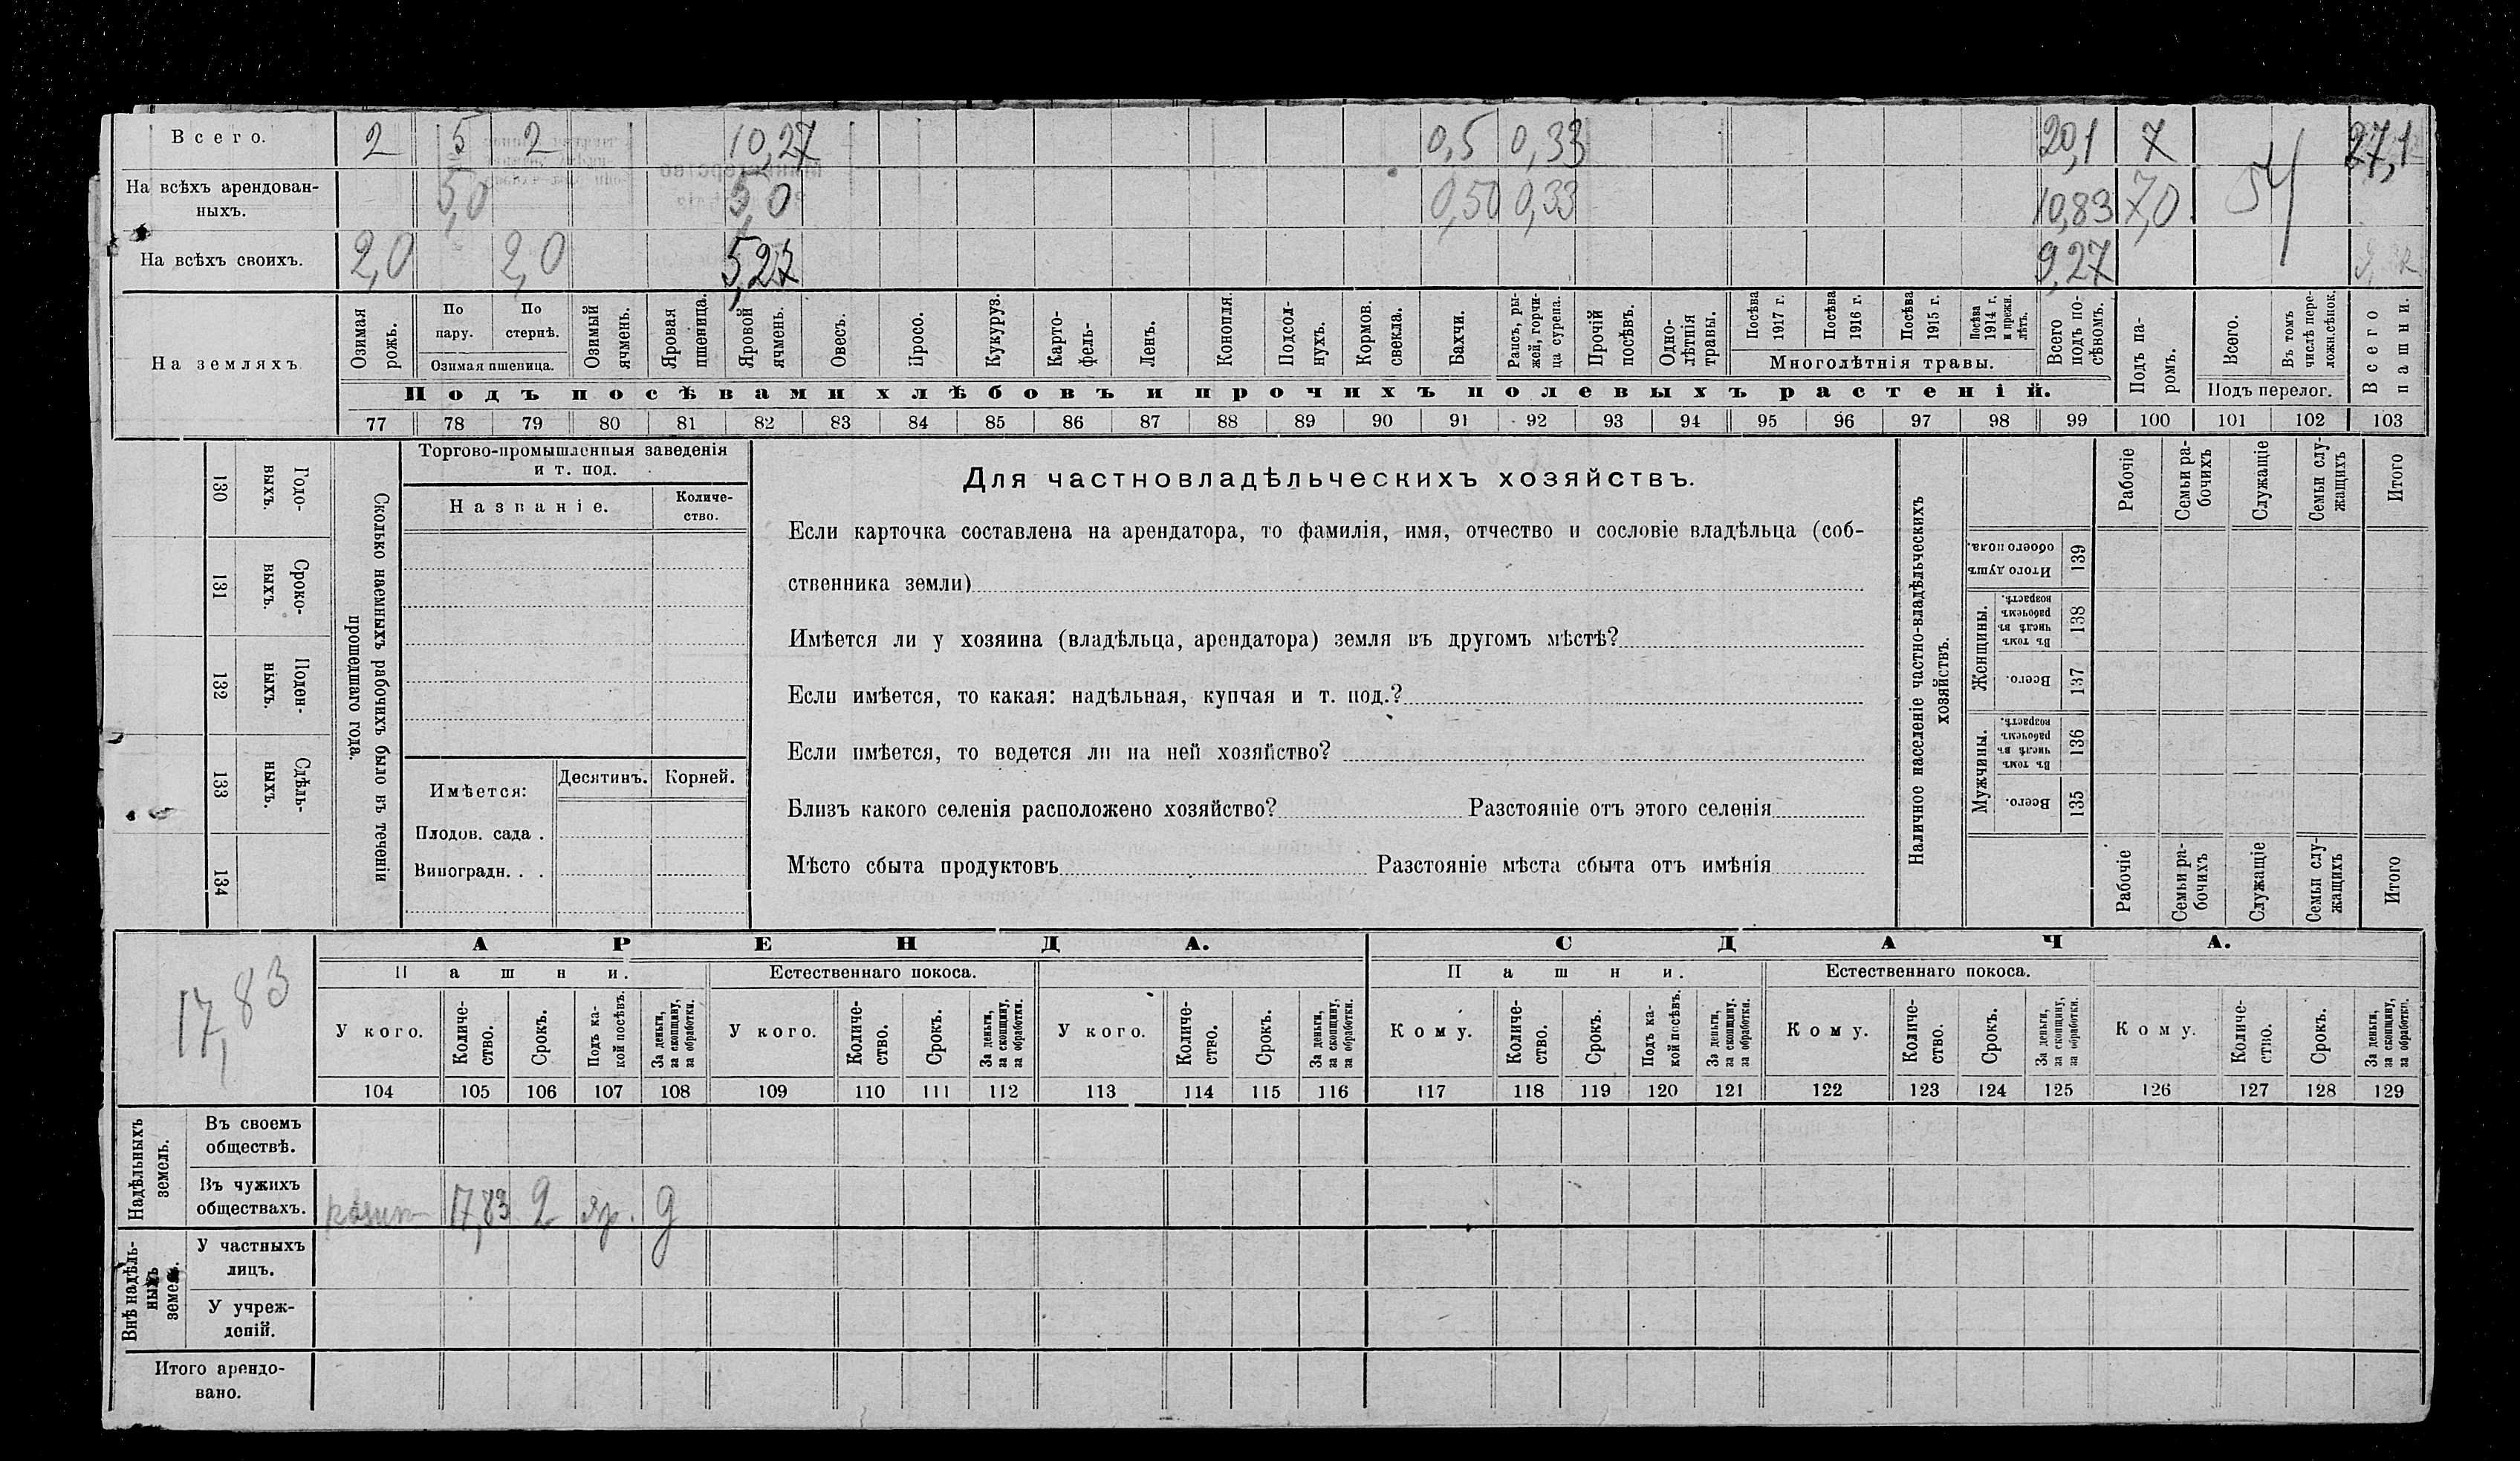 Всего. 2 5 2 10,27 0,5 0,33 20,1 7 27,1
На всѣхъ арендован-
ныхъ. 5,0 5,0 0,50 0,33 10,83 7,0 54
На всѣхъ своихъ. 2,0 2,0 5,27 9,27
На земляхъ
Озимая рожь.
По пару.
По стернѣ.
Озимая пшеница.
Озимый ячмень.
Яровая пшеница.
Яровой ячмень.
Овесъ.
Просо.
Кукуруз.
Карто-
фель-
Ленъ.
Конопля.
Подсол-
нухъ.
Кормов.
свекла.
Бахчи.
Рапсъ, ры-
жей, горчи-
ца сурепа.
Прочій
посѣвъ.
Одно-
лѣтнія
травы.
Посѣва
1917 г.
Посѣва
1916 г.
Посѣва
1915 г.
Посѣва
1914 г.
и прежн.
лѣтъ.
Многолѣтнія травы.
Всего
подъ по-
сѣвомъ.
Подъ па-
ромъ.
Всего.
Въ томъ
числѣ пере-
ложн.сѣнок.
Подъ перелог.
Всего
пашни.
Подъ посѣвами хлѣбовъ и прочихъ полевыхъ растеній.
77 78 79 80 81 82 83 84 85 86 87 88 89 90 91 92 93 94 95 96 97 98 99 100 101 102 103
130
Годо-
выхъ.
131
Сроко-
выхъ.
132
Поден-
ныхъ.
133
Сдѣль-
ныхъ.
134
Сколько наемныхъ рабочихъ было въ теченіи
прошедшаго года.
Торгово-промышленныя заведенія
и т. под.
Названіе.
Количе-
ство.
Имѣется:
Десятинъ. Корней.
Плодов. сада .
Виноградн. . .
Для частновладѣльческихъ хозяйствъ.
Если карточка составлена на арендатора, то фамилія, имя, отчество и сословіе владѣльца (соб-
ственника земли)
Имѣется ли у хозяина (владѣльца, арендатора) земля въ другомъ мѣстѣ?
Если имѣется, то какая: надѣльная, купчая и т. под.?
Если имѣется, то ведется ли на ней хозяйство?
Близъ какого селенія расположено хозяйство? Разстояніе отъ этого селенія
Мѣсто сбыта продуктовъ Разстояніе мѣста сбыта отъ имѣнія
Наличное населеніе частно-владѣльческихъ
хозяйствъ.
Рабочіе
Семьи ра-
бочихъ
Служащіе
Семьи слу-
жащихъ
Итого
Итого душъ
обоего пола.
139
Женщины.
Въ томъ
числѣ въ
рабочемъ
возрастѣ.
138
Всего.
137
Мужчины.
Въ томъ
числѣ въ
рабочемъ
возрастѣ.
136
Всего.
135
Рабочіе
Семьи ра-
бочихъ
Служащіе
Семьи слу-
жащихъ
Итого
17,83
АРЕНДА. СДАЧА.
Пашни. Естественнаго покоса. Пашни. Естественнаго покоса.
У кого.
Количе-
ство.
Срокъ.
Подъ ка-
кой посѣвъ.
За деньги,
за скопщину,
за обработки.
У кого.
Количе-
ство.
Срокъ.
За деньги,
за скопщину,
за обработки.
У кого.
Количе-
ство.
Срокъ.
За деньги,
за скопщину,
за обработки.
Кому.
Количе-
ство.
Срокъ.
Подъ ка-
кой посѣвъ.
За деньги,
за скопщину,
за обработки.
Кому.
Количе-
ство.
Срокъ.
За деньги,
за скопщину,
за обработки.
Кому.
Количе-
ство.
Срокъ.
За деньги,
за скопщину,
за обработки.
104 105 106 107 108 109 110 111 112 113 114 115 116 117 118 119 120 121 122 123 124 125 126 127 128 129
Надѣльныхъ
земель.
Въ своемъ
обществѣ.
Въ чужихъ
обществахъ. 17,83 2 яр. д
Внѣ надѣль-
ныхъ
земель.
У частныхъ
лицъ.
У учреж-
деній.
Итого арендо-
вано.